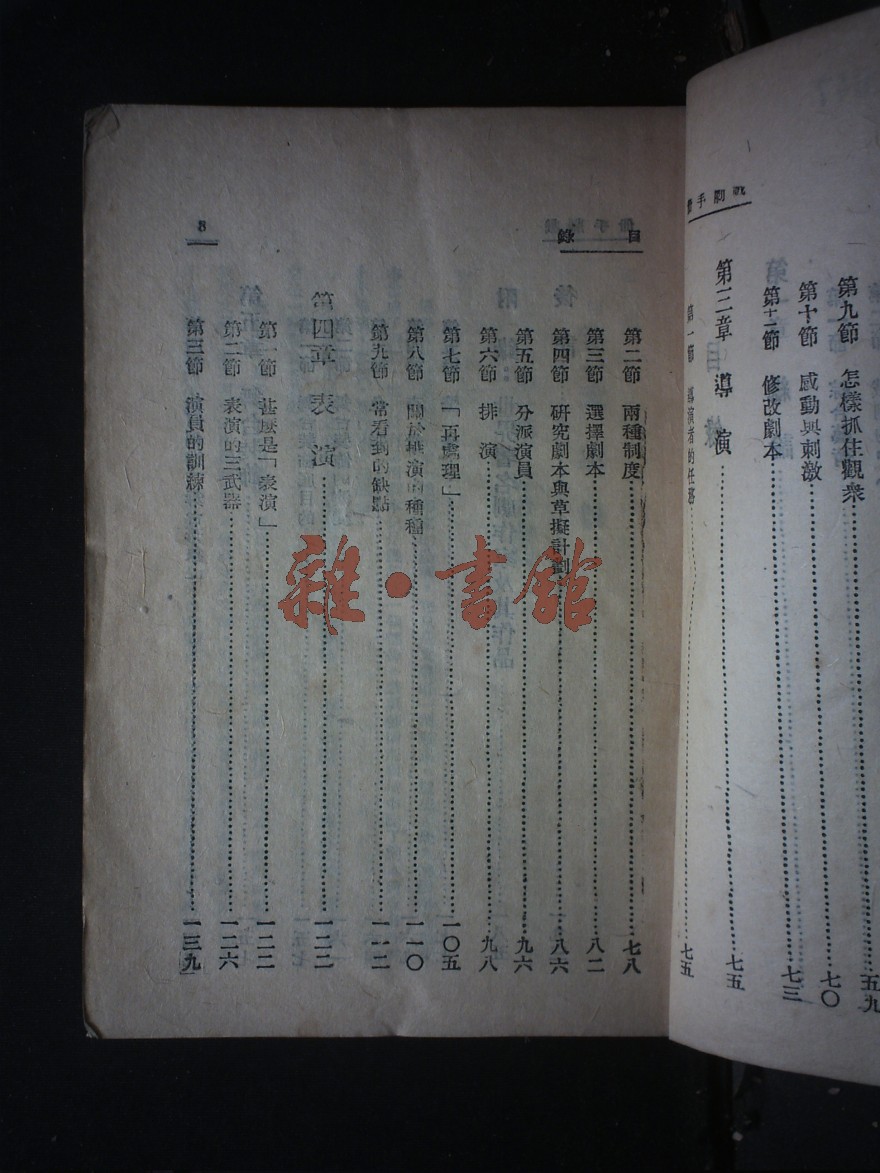 戲劇手冊
第九節　怎樣抓住觀衆……五九
第十節　感動與刺激……七〇
第十一節　修改劇本……七三
第三章　導演……七五
第一節　導演者的任務……七五
目錄
第二節　兩種制度……七八
第三節　選擇劇本……八二
第四節　研究劇本與草擬計劃……八六
第五節　分派演員……九六
第六節　排演……九八
第七節　「再處理」……一〇五
第八節　關於排演的種種……一一〇
第九節　常看到的缺點……一一二
第四章　表演……一二二
第一節　甚麼是「表演」……一二二
第二節　表演的三武器……一二六
第三節　演員的訓練……一三九
8
雜·書館